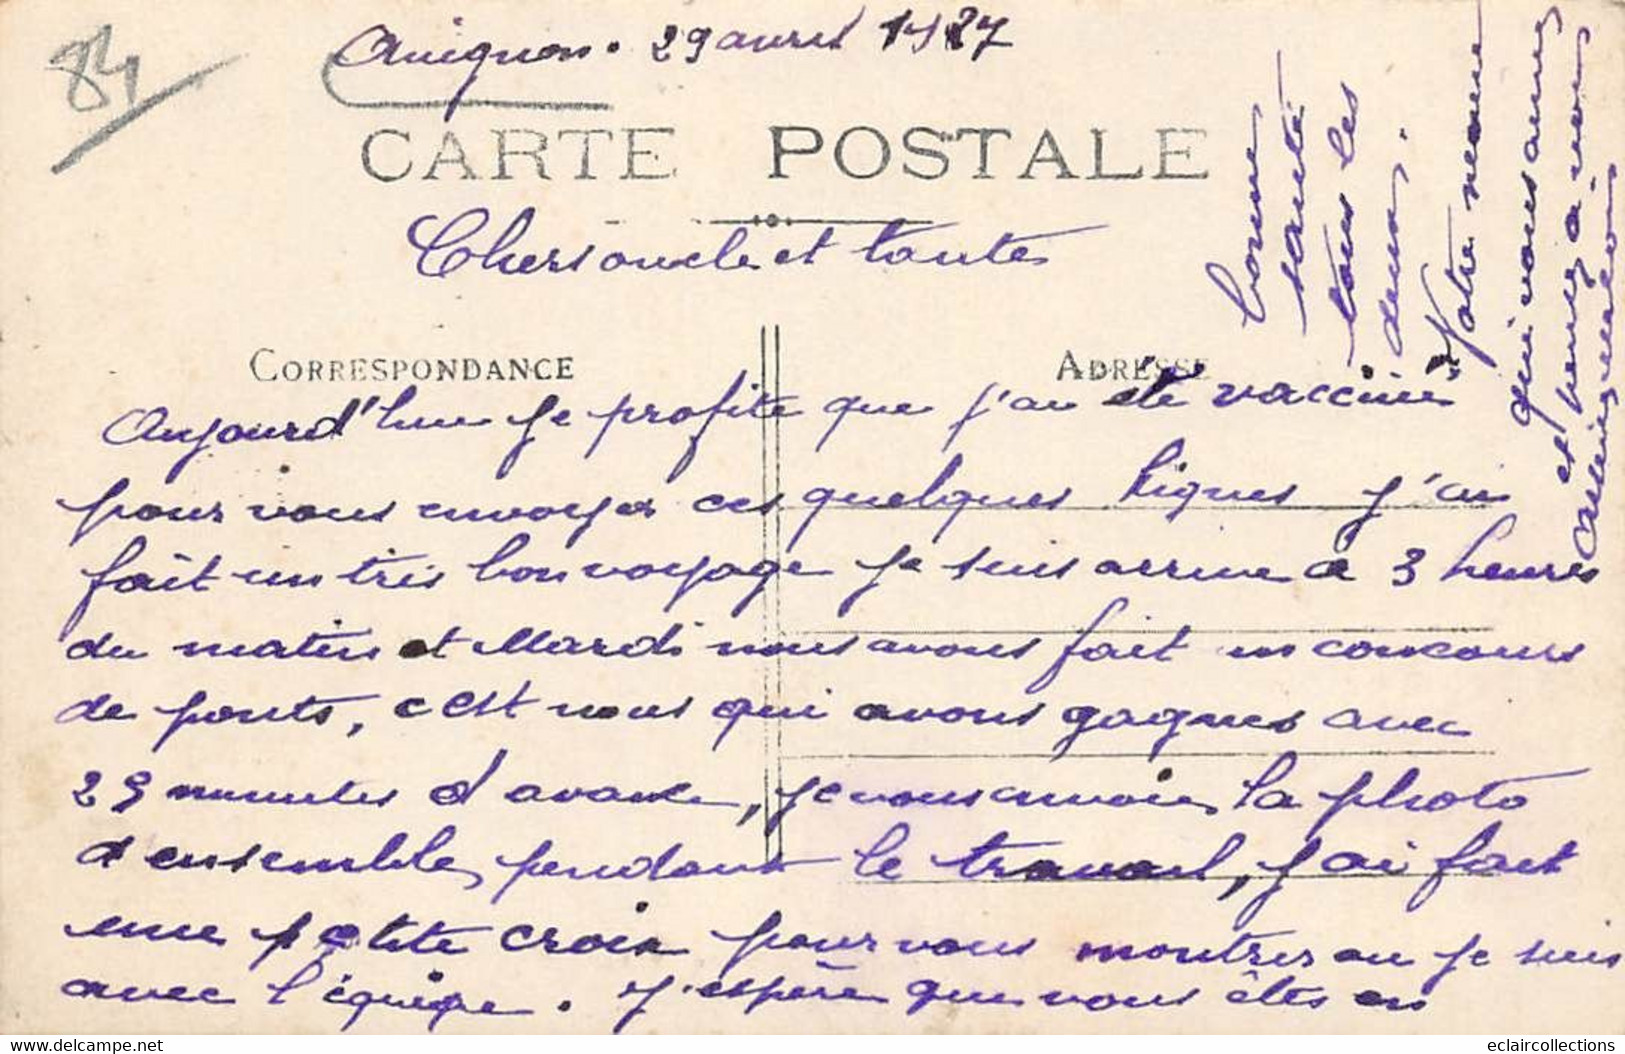 84
Avignon. 29 avril 1927
CARTE POSTALE
Chers oncle et tante
CORRESPONDANCE
ADRESSE
Aujourd'hui je profite que j'ai été vacciné
pour vous envoyer ces quelques lignes j'ai
fait un très bon voyage je suis arrivé a 3 heures
du matin et Mardi nous avons fait un concours
de ponts, c est nous qui avons gagnés avec
29 minutes d avance, je vous envoie la photo
d ensemble pendant le travail, j ai fait
une petite croix pour vous montrer ou je suis
avec l'équipe. J'espère que vous êtes en
bonne
santé
tous les
deux.
Votre neveu
qui vous aime
et pense a vous
eclaircollections.com